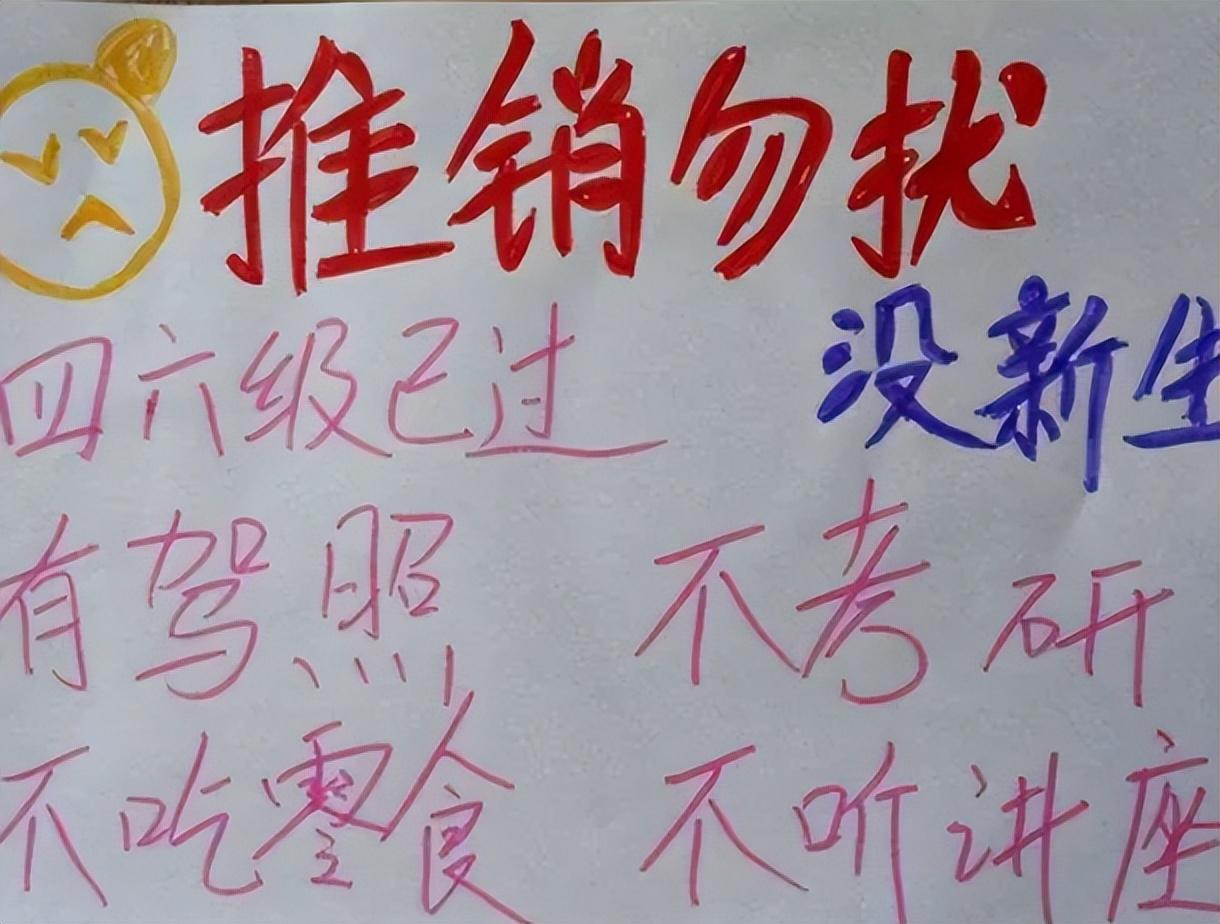 推销勿扰
四六级已过 没新生
有驾照 不考研
不吃零食 不听讲座